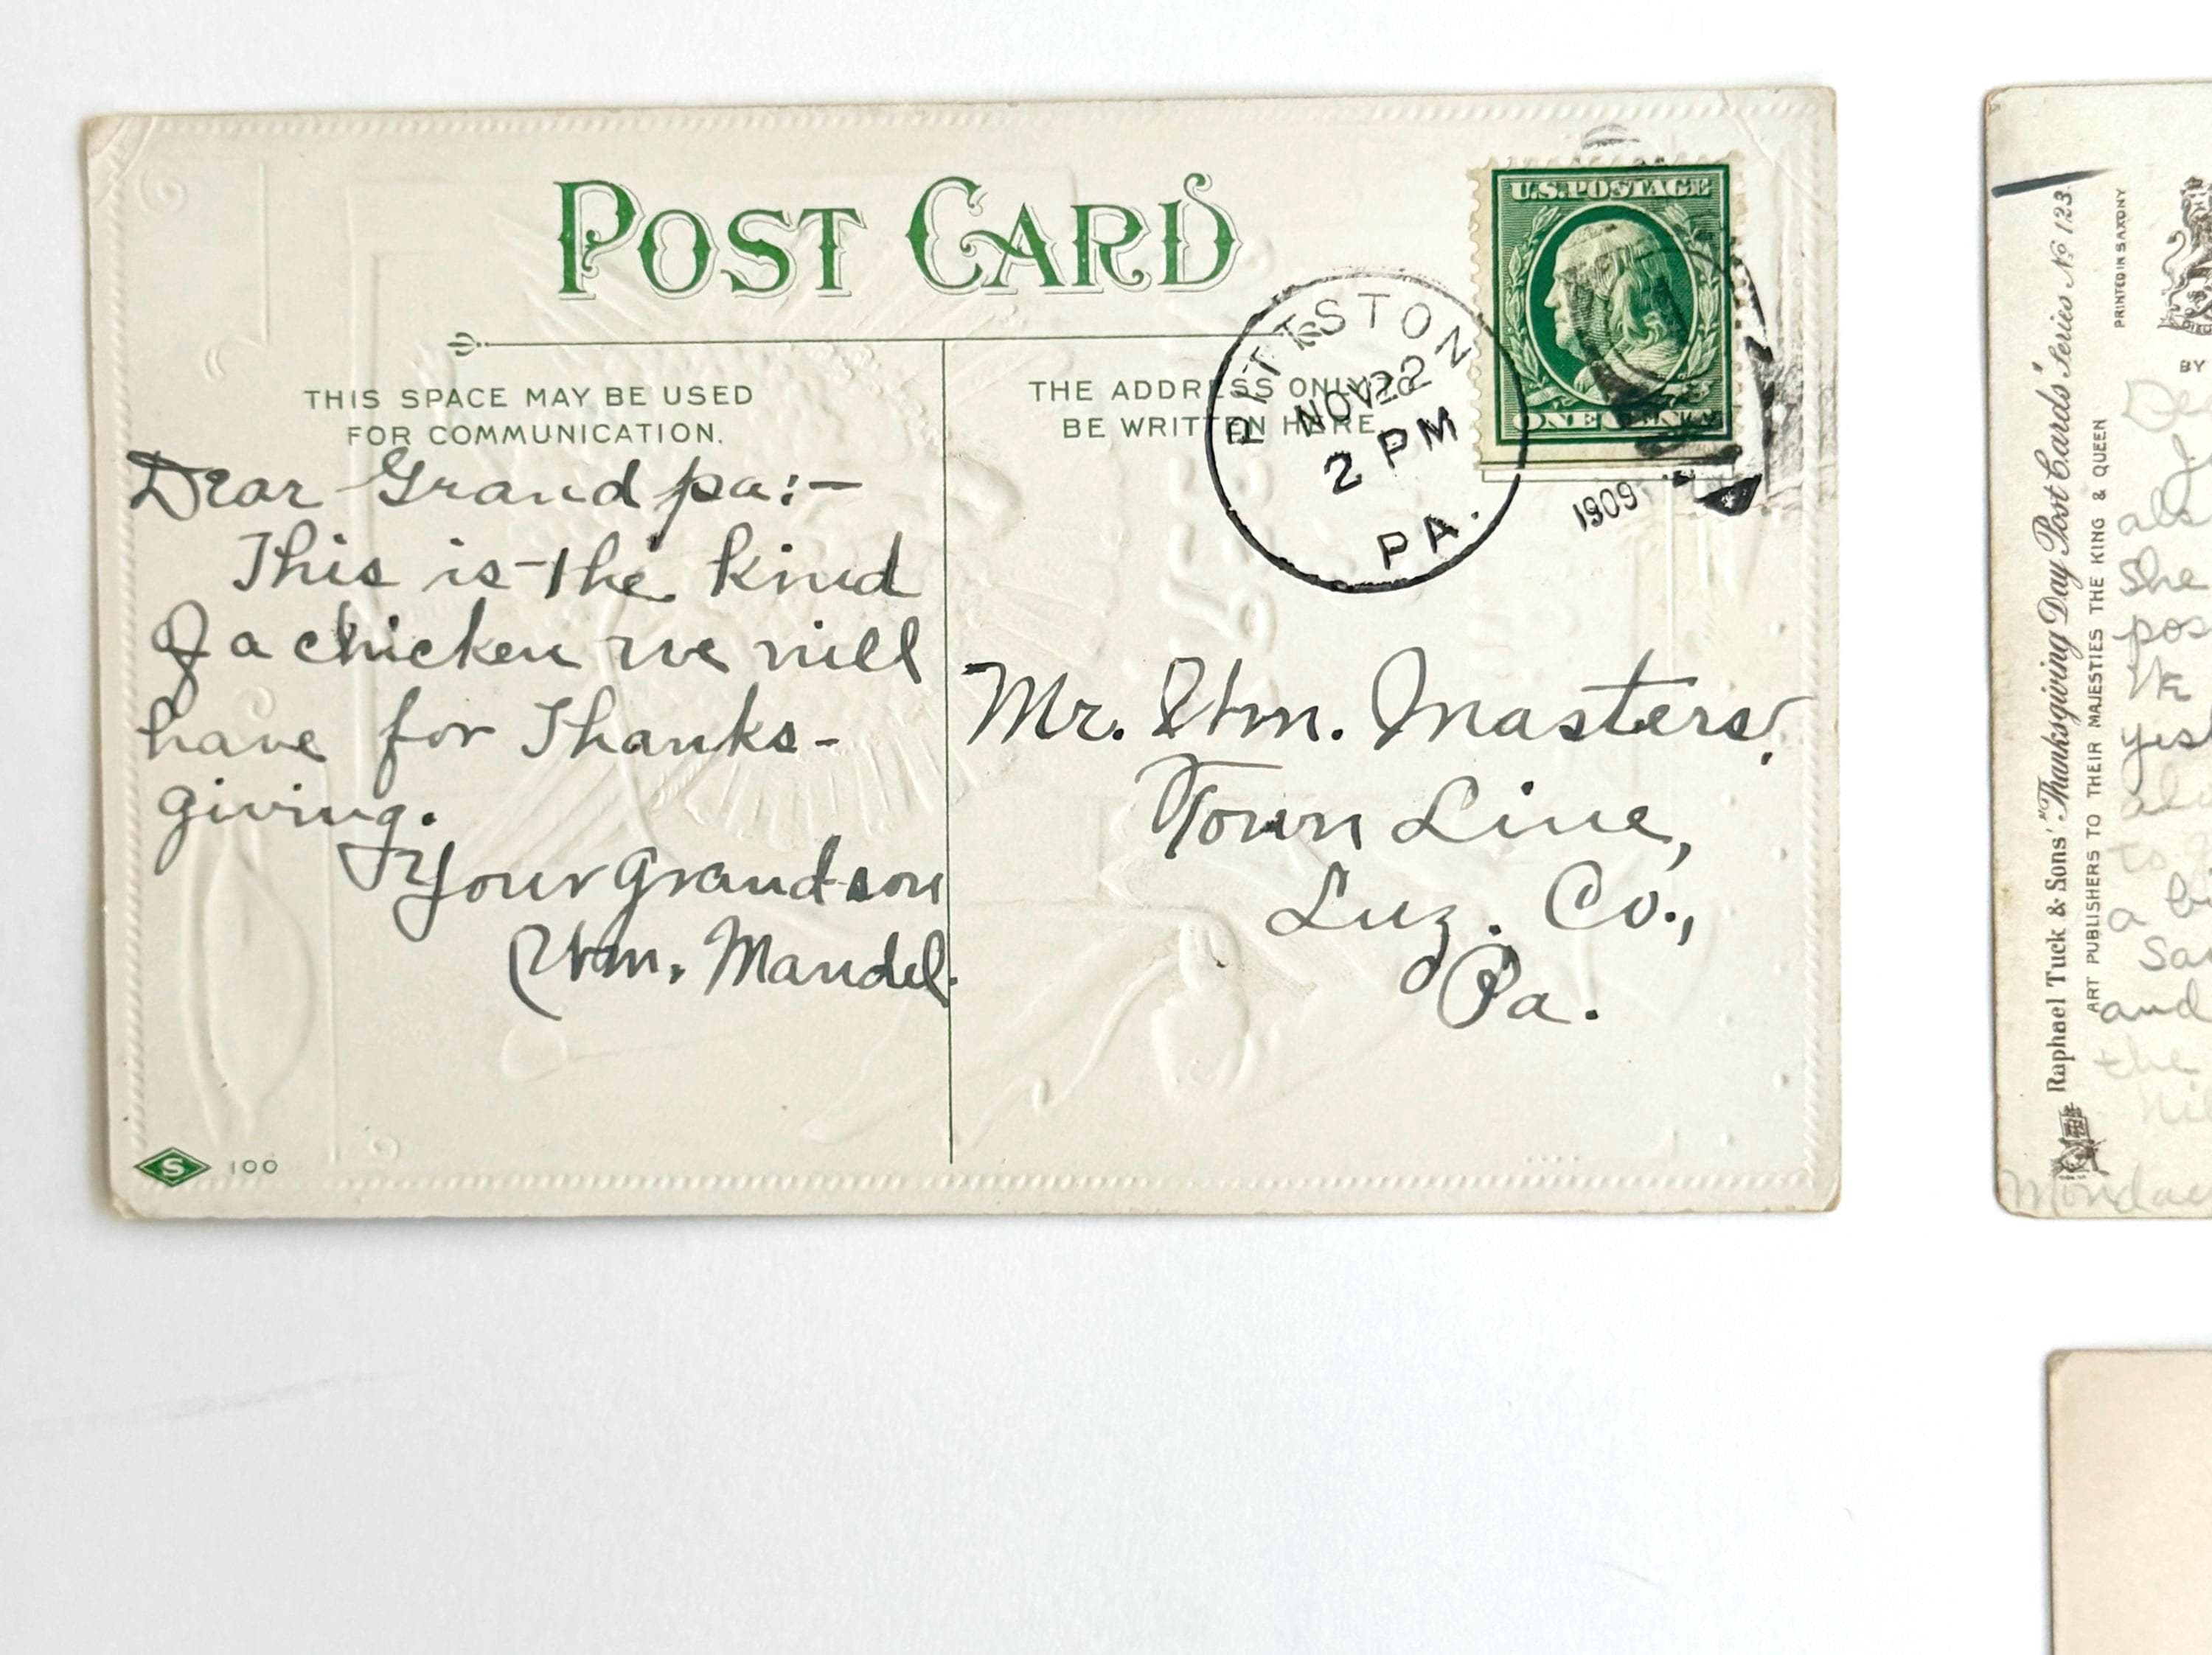 POST CARD
THIS SPACE MAY BE USED
FOR COMMUNICATION.
Dear Grandpa:-
This is the kind
of a chicken we will
have for Thanks-
giving.
Your grandson
Wm. Mandel.
S 100
THE ADDRESS ONLY TO
BE WRITTEN HERE.
PITTSTON
NOV 22
2 PM
1909
PA.
U.S. POSTAGE
ONE CENT
Mr. Wm. Masters,
Town Line,
Luz. Co.,
Pa.
Raphael Tuck & Sons' "Thanksgiving Day Post Cards" Series No 123.
ART PUBLISHERS TO THEIR MAJESTIES THE KING & QUEEN
PRINTED IN SAXONY
BY
She
a
and
the